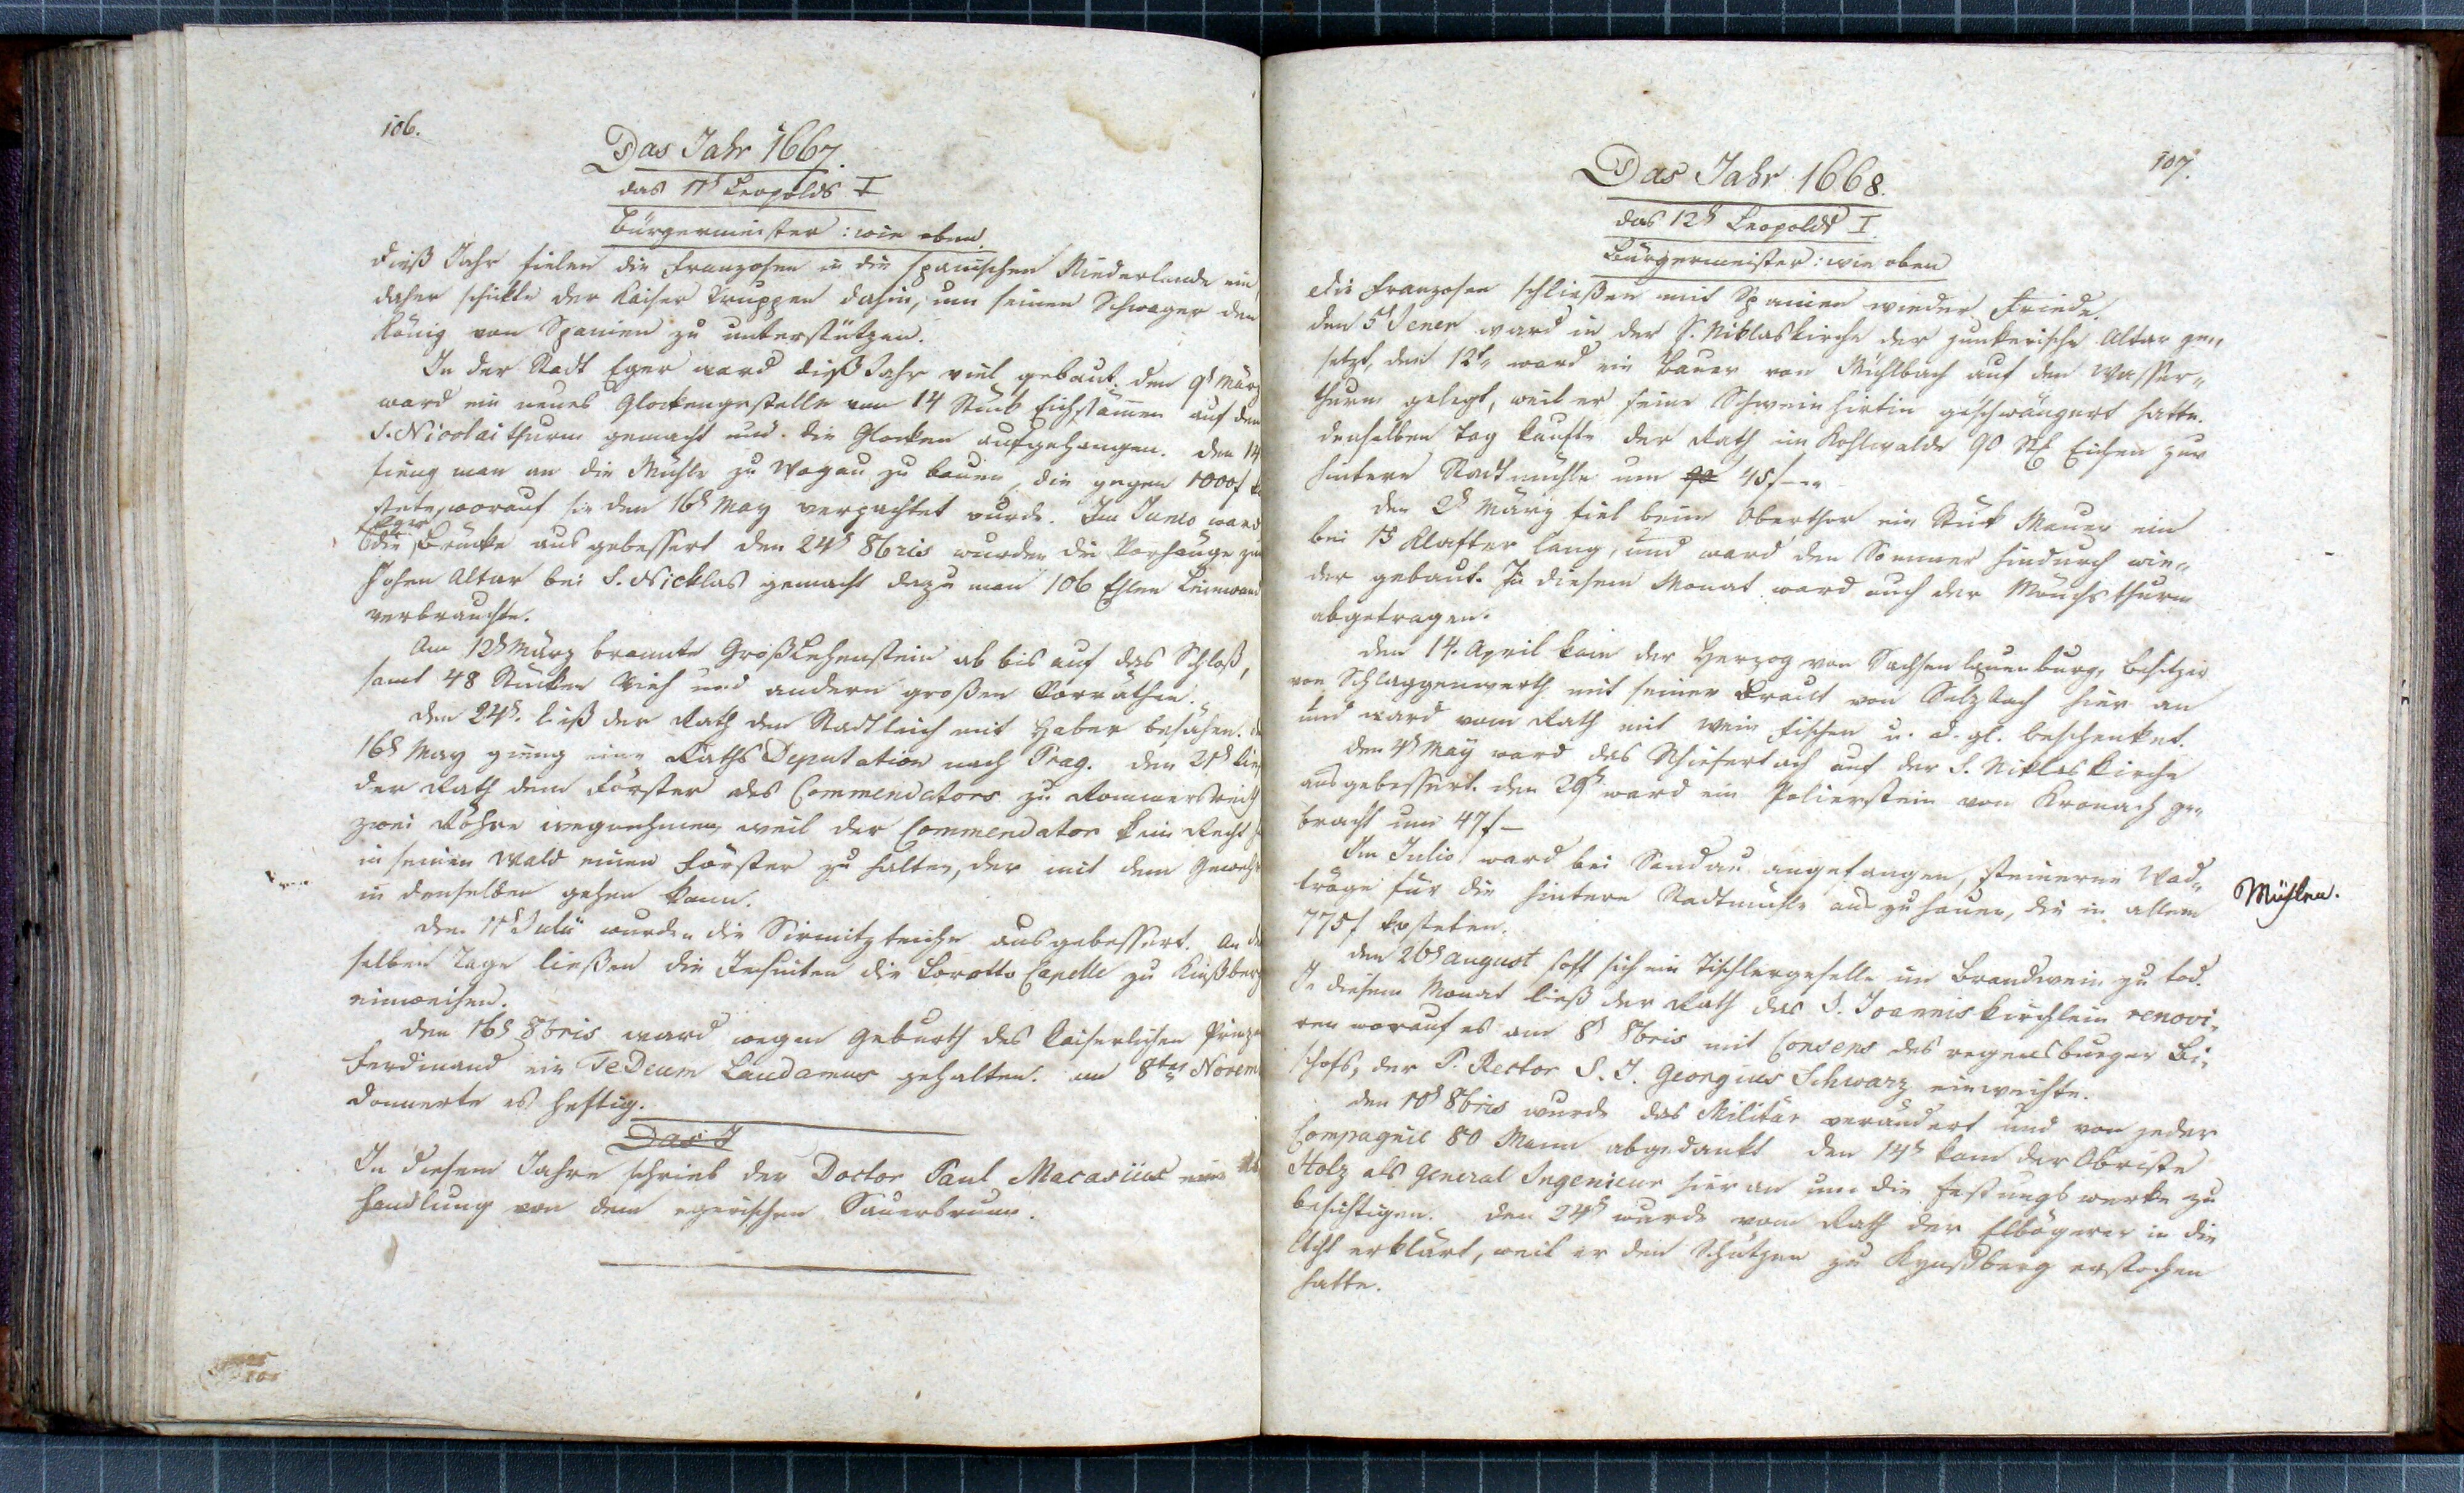 106.
Das Jahr 1667.
das 11t Leopolds I
Bürgermeister: wie oben.
dieß Jahr fielen die Franzosen in die spanischen Niederlande ein,
daher schickte der Kaiser Truppen dahin, um seinen Schwager den
König von Spanien zu unterstützen.
In der Stadt Eger ward dieß Jahr viel gebaut. den 9t März
ward ein neues Glockengestelle von 14 Stück Eichstämen auf dem
S. Nicolai thurm gemacht und die Glocken aufgehangen. den 14
fieng man an die Mühle zu Wogau zu bauen, die gegen 1000f ko
stete, worauf sie den 16t May verpachtet wurde. Im Junio ward
die Eger Brücke ausgebessert den 24t 8bris wurden die Vorhänge zum
hohen Altar bei S. Nicklas gemacht dazu man 106 Ehlen Leinwand
verbrauchte.
Am 12t März brannte Großlehenstein ab bis auf das Schloß,
samt 48 Stücken Vieh und andern großen Vorräthen.
den 24t. ließ der Rath den Stadtteich mit Haber besähen. d
16t May gieng eine Raths Deputation nach Prag. den 21t ließ
der Rath dem Förster des Commendators zu Rommersreith
zwei Röhre wegnehmen, weil der Commendator kein Recht h
in seinen Wald einen Förster zu halten, der mit dem Gewehr
in denselben gehen kann.
den 11t Julii wurden die Sirmitzteiche ausgebessert. An de
selben Tage ließen die Jesuiten die Loretto Capelle zu Kinßberg
einweihen.
den 16t 8bris ward wegen Geburth des kaiserlichen Prinzen
Ferdinand ein TeDeum Laudamus gehalten. am 8ten Novem
donnerte es heftig.
Das J
In diesem Jahre schrieb der Doctor Paul Macasius eine Ab
handlung von dem egerischen Sauerbrunn.
107.
Das Jahr 1668.
das 12t Leopolds I.
Bürgermeister: wie oben
die Franzosen schließen mit Spanien wieder Friede.
den 5t Jener ward in der S. Niklaskirche der junkerische Altar ge„
setzt, den 12t ward ein Bauer von Mühlbach auf den Wasser„
thurm gelegt, weil er seine Schweinhirtin geschwängert hatte.
denselben Tag kaufte der Rath im Kohlwalde 90 St Eichen zur
hintern Stadtmühle um 90 45f
den 2t März fiel beim Oberthor ein Stück Mauer ein
bei 15 Klafter lang, und ward den Sommer hindurch wie„
der gebaut. In diesem Monat ward auch der Mönchsthurm
abgetragen.
den 14. April kam der Herzog von Sachsen lauenburg, Besitzer
von Schlaggenwerth mit seiner Braut von Sulzbach hier an
und ward vom Rath mit Wein Fischen u. d. gl. beschenket.
den 4t May ward das Schieferdach auf der S. Niklaskirche
ausgebessert. den 29t ward ein Polierstein von Kronach ge„
bracht um 47f
Im Julio ward bei Sandau angefangen, steinerne Wad„
tröge für die hintere Stadtmühle aus zu hauen, die in allem
775f kosteten.
Mühlen.
den 26t august soff sich ein Tischlergeselle im Brandwein zu tod.
In diesem Monat ließ der Rath das S. Joanniskirchlein renovi„
ren worauf es am 8t 8bris mit Consens des regensburger Bi„
schofs, der P. Rector S. J. Georgius Schwarz einweihte.
den 10t 8bris wurde das Militär verändert und von jeder
Compagnie 80 Mann abgedankt den 14t kam der Obriste
Stolz als General Ingenieur hier an um die Festungswerke zu
besichtigen. den 24t wurde vom Rath der Elbögerer in die
Acht erklärt, weil er den Schützen zu Kynßberg erstochen
hatte.